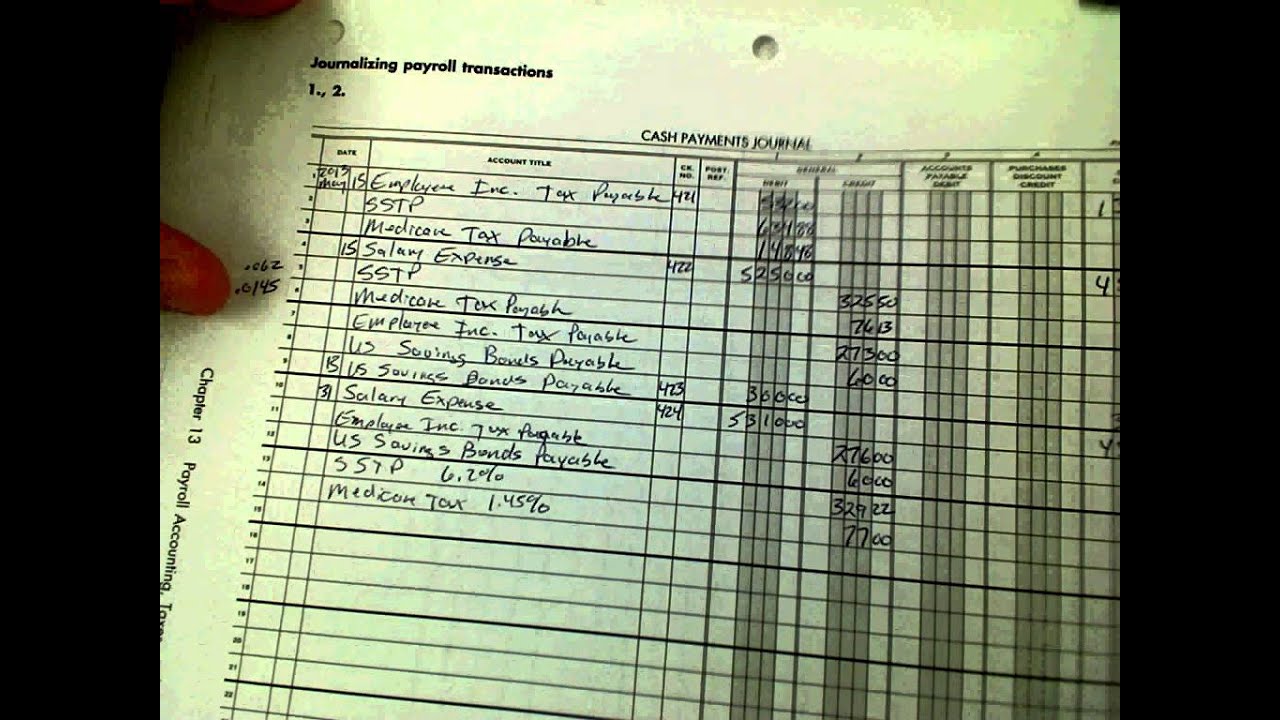 Journalizing payroll transactions
1., 2.
CASH PAYMENTS JOURNAL
1 2 3 4
DATE ACCOUNT TITLE CK. NO. POST. REF. GENERAL DEBIT CREDIT ACCOUNTS PAYABLE DEBIT PURCHASES DISCOUNT CREDIT
1 2013 May 15 Employee Inc. Tax Payable 421
2 SSTP 63488
3 Medicare Tax Payable 14848
4 15 Salary Expense 422 525000
5 SSTP 32550
6 Medicare Tax Payable 7613
7 Employee Inc. Tax Payable 27300
8 US Savings Bonds Payable 6000
9 15 US Savings Bonds Payable 423 30000
10 31 Salary Expense 424 531000
11 Employee Inc. Tax Payable 27600
12 US Savings Bonds Payable 6000
13 SSTP 6.2% 32922
14 Medicare Tax 1.45% 7700
15
16
17
18
19
20
21
22
.062
.0145
Chapter 13 Payroll Accounting,